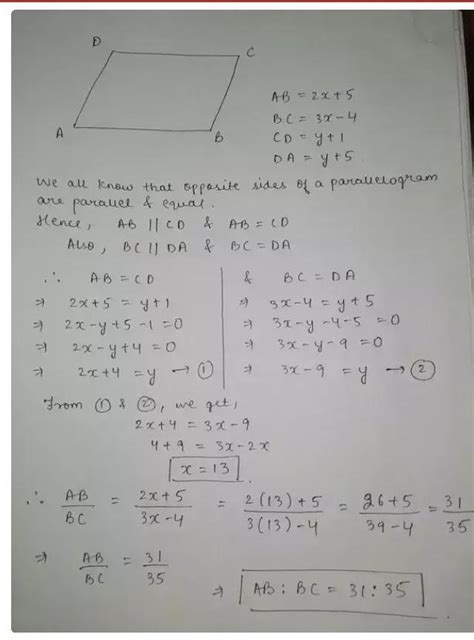 D
C
A
B
AB = 2x+5
BC = 3x-4
CD = y+1
DA = y+5
We all know that opposite sides of a parallelogram
are parallel & equal.
Hence, AB || CD & AB = CD
Also, BC || DA & BC = DA
∴ AB = CD
⇒ 2x+5 = y+1
⇒ 2x-y+5-1=0
⇒ 2x-y+4=0
⇒ 2x+4 = y → ①
& BC = DA
⇒ 3x-4 = y+5
⇒ 3x-y-4-5 = 0
⇒ 3x-y-9 = 0
⇒ 3x-9 = y → ②
From ① & ②, we get,
2x+4 = 3x-9
4+9 = 3x-2x
x = 13
∴ AB/BC = (2x+5)/(3x-4) = (2(13)+5)/(3(13)-4) = (26+5)/(39-4) = 31/35
⇒ AB/BC = 31/35
⇒ AB : BC = 31 : 35